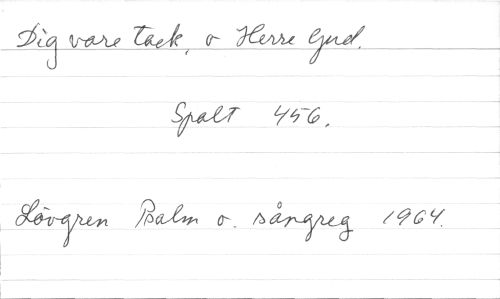 Dig vare tack, o Herre Gud.
Spalt 456.
Lövgren Psalm o. sångreg 1964.